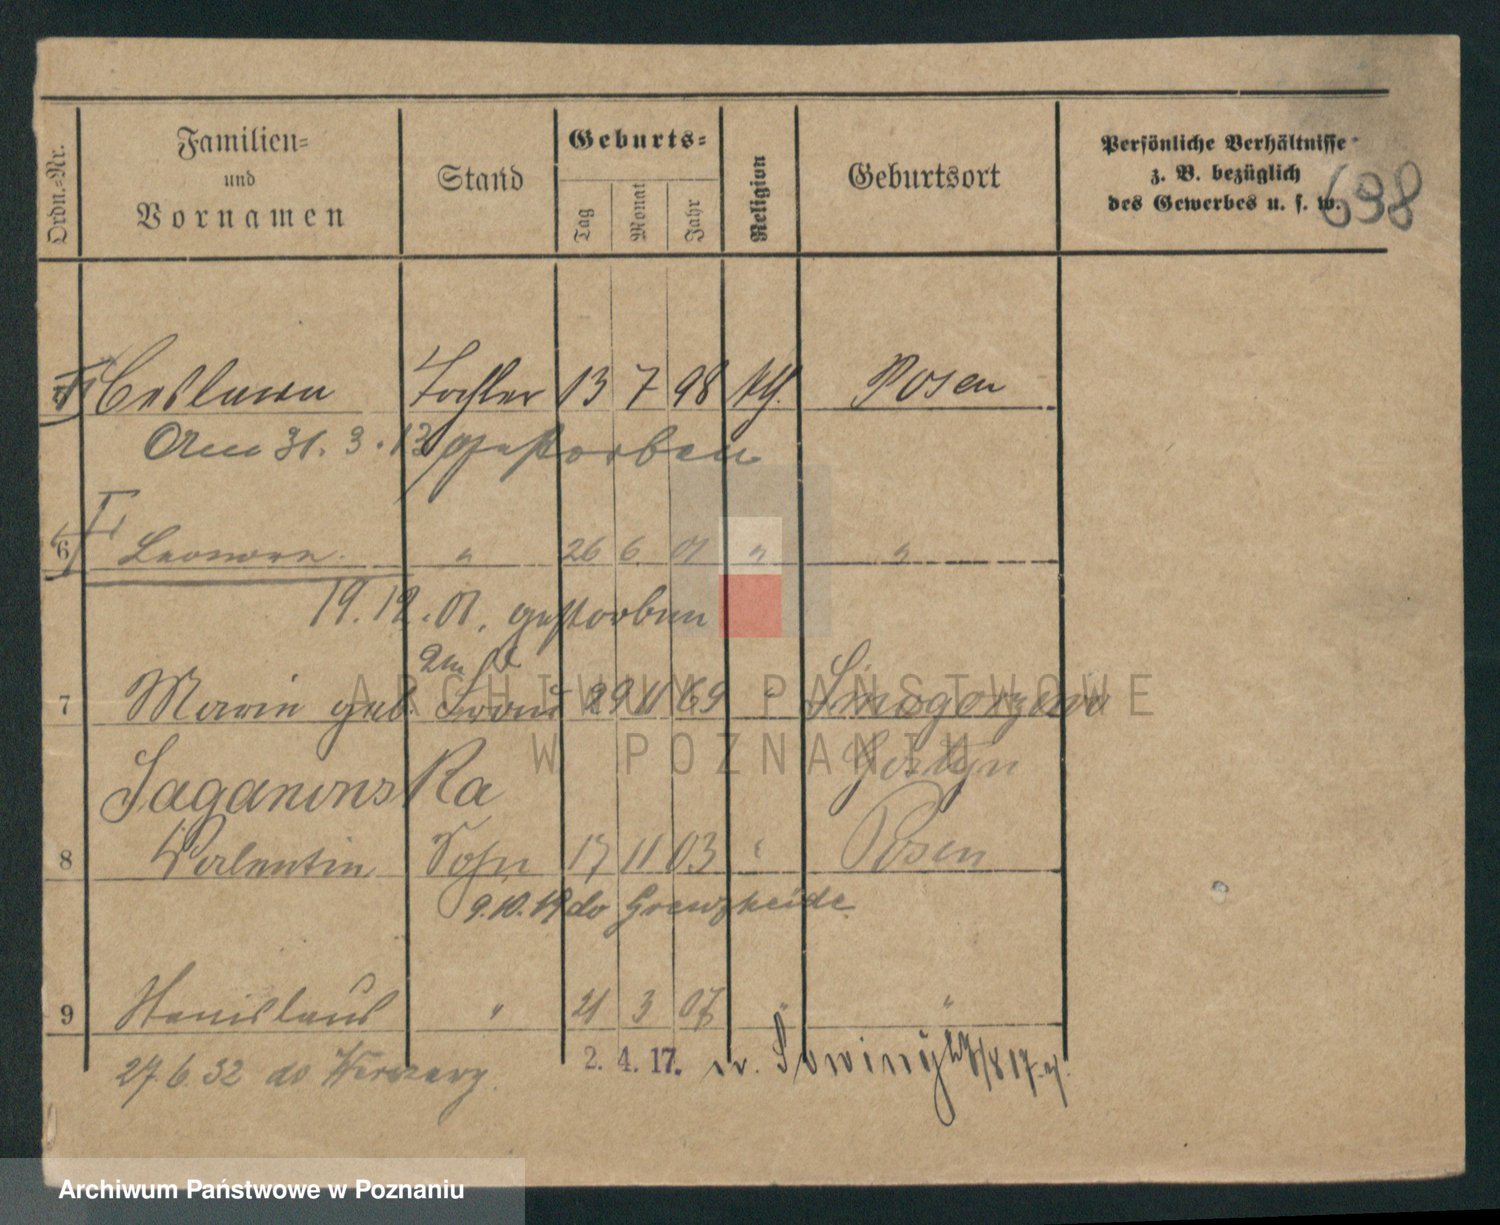 Ordn.=Nr.
Familien=
und
Vornamen
Stand
Geburts=
Tag
Monat
Jahr
Religion
Geburtsort
Persönliche Verhältnisse
z. B. bezüglich
des Gewerbes u. s. w.
698
Ceslawa Tochter 13 7 98 kth. Posen
Am 31.3.13 gestorben
6 Leonora " 26 6. 01 " "
19.12.01. gestorben
2te
7 Marie geb. Frau 29 11 69 " Smogorzewo
Gostyn
Saganowska
8 Valentin Sohn 17 11 03 " Posen
9.10.19 do Grenzheide
9 Stanislaus " 21 3 07 " "
27.6.32 do
2. 4. 17.
ARCHIWUM PAŃSTWOWE
W POZNANIU
Archiwum Państwowe w Poznaniu